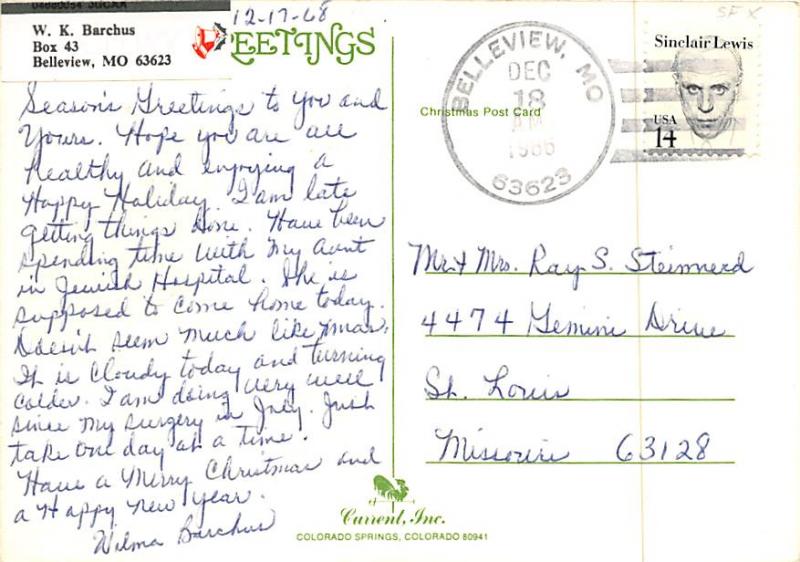 W. K. Barchus
Box 43
Belleview, MO 63623
12-17-68
GREETINGS
Season's Greetings to You and
Yours. Hope you are all
healthy and enjoying a
Happy Holiday. I am late
getting things done. Have been
spending time with my Aunt
in Jewish Hospital. She is
supposed to come home today.
Doesn't seem much like Xmas.
It is cloudy today and turning
colder. I am doing very well
since my surgery in July. Just
take one day at a time.
Have a Merry Christmas and
a Happy New Year.
Wilma Barchus
Christmas Post Card
BELLEVIEW, MO
DEC
18
AM
1986
63623
SF X
Sinclair Lewis
USA
14
Mr. & Mrs. Ray S. Steinnerd
4474 Gemini Drive
St. Louis
Missouri 63128
Current, Inc.
COLORADO SPRINGS, COLORADO 80941